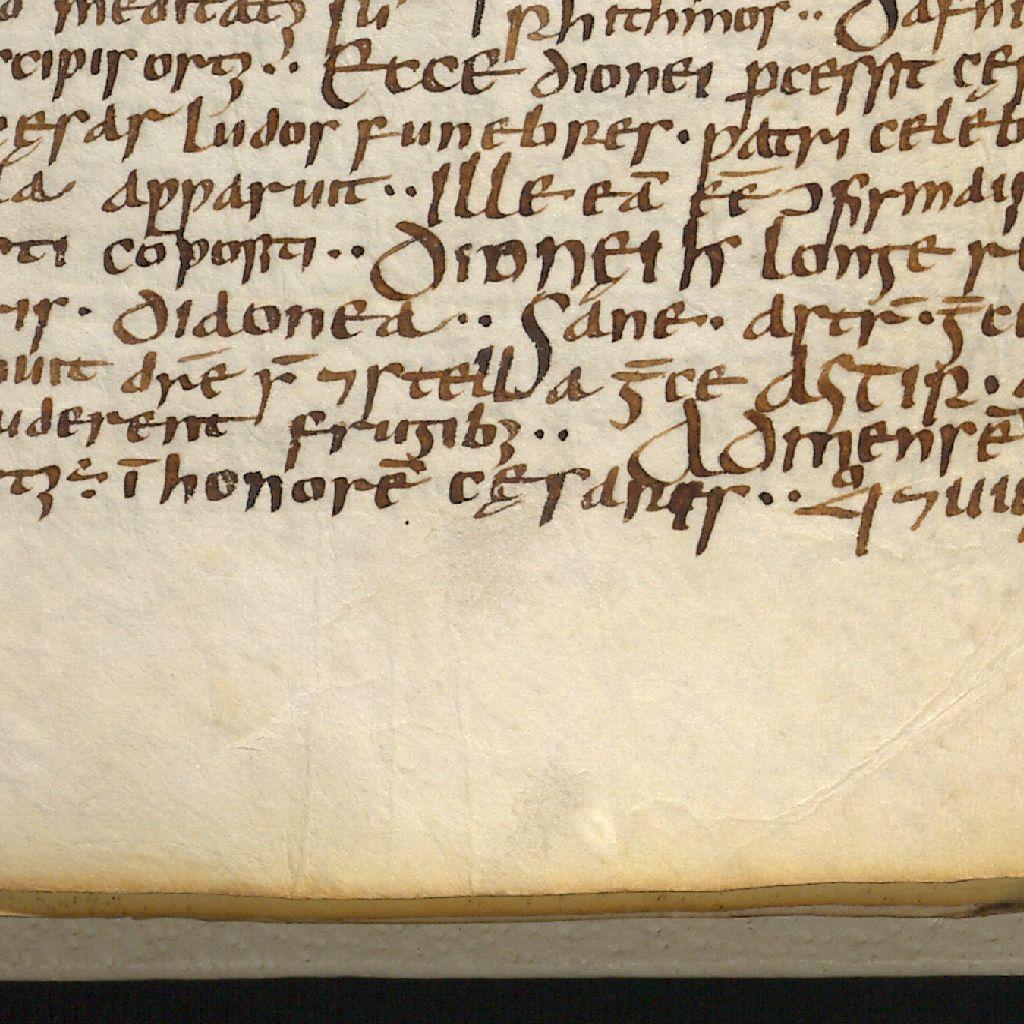 meditatꝫ sū Rhithmos·· Dafni
cipis ortꝫ·· Ecce dionei ꝓcessit cęs
cęsar ludos funebres· patri celeb
la apparuit·· Ille eā eē ɔfirmau
rti coposti·· Dionei h longe
is· didonea·· Sane·· astr̄· g̅ce
dr̄e r̄ ⁊stella g̅ce astir·
uderent frugibꝫ·· Admensē
tꝫ ī honorē cęsaris··